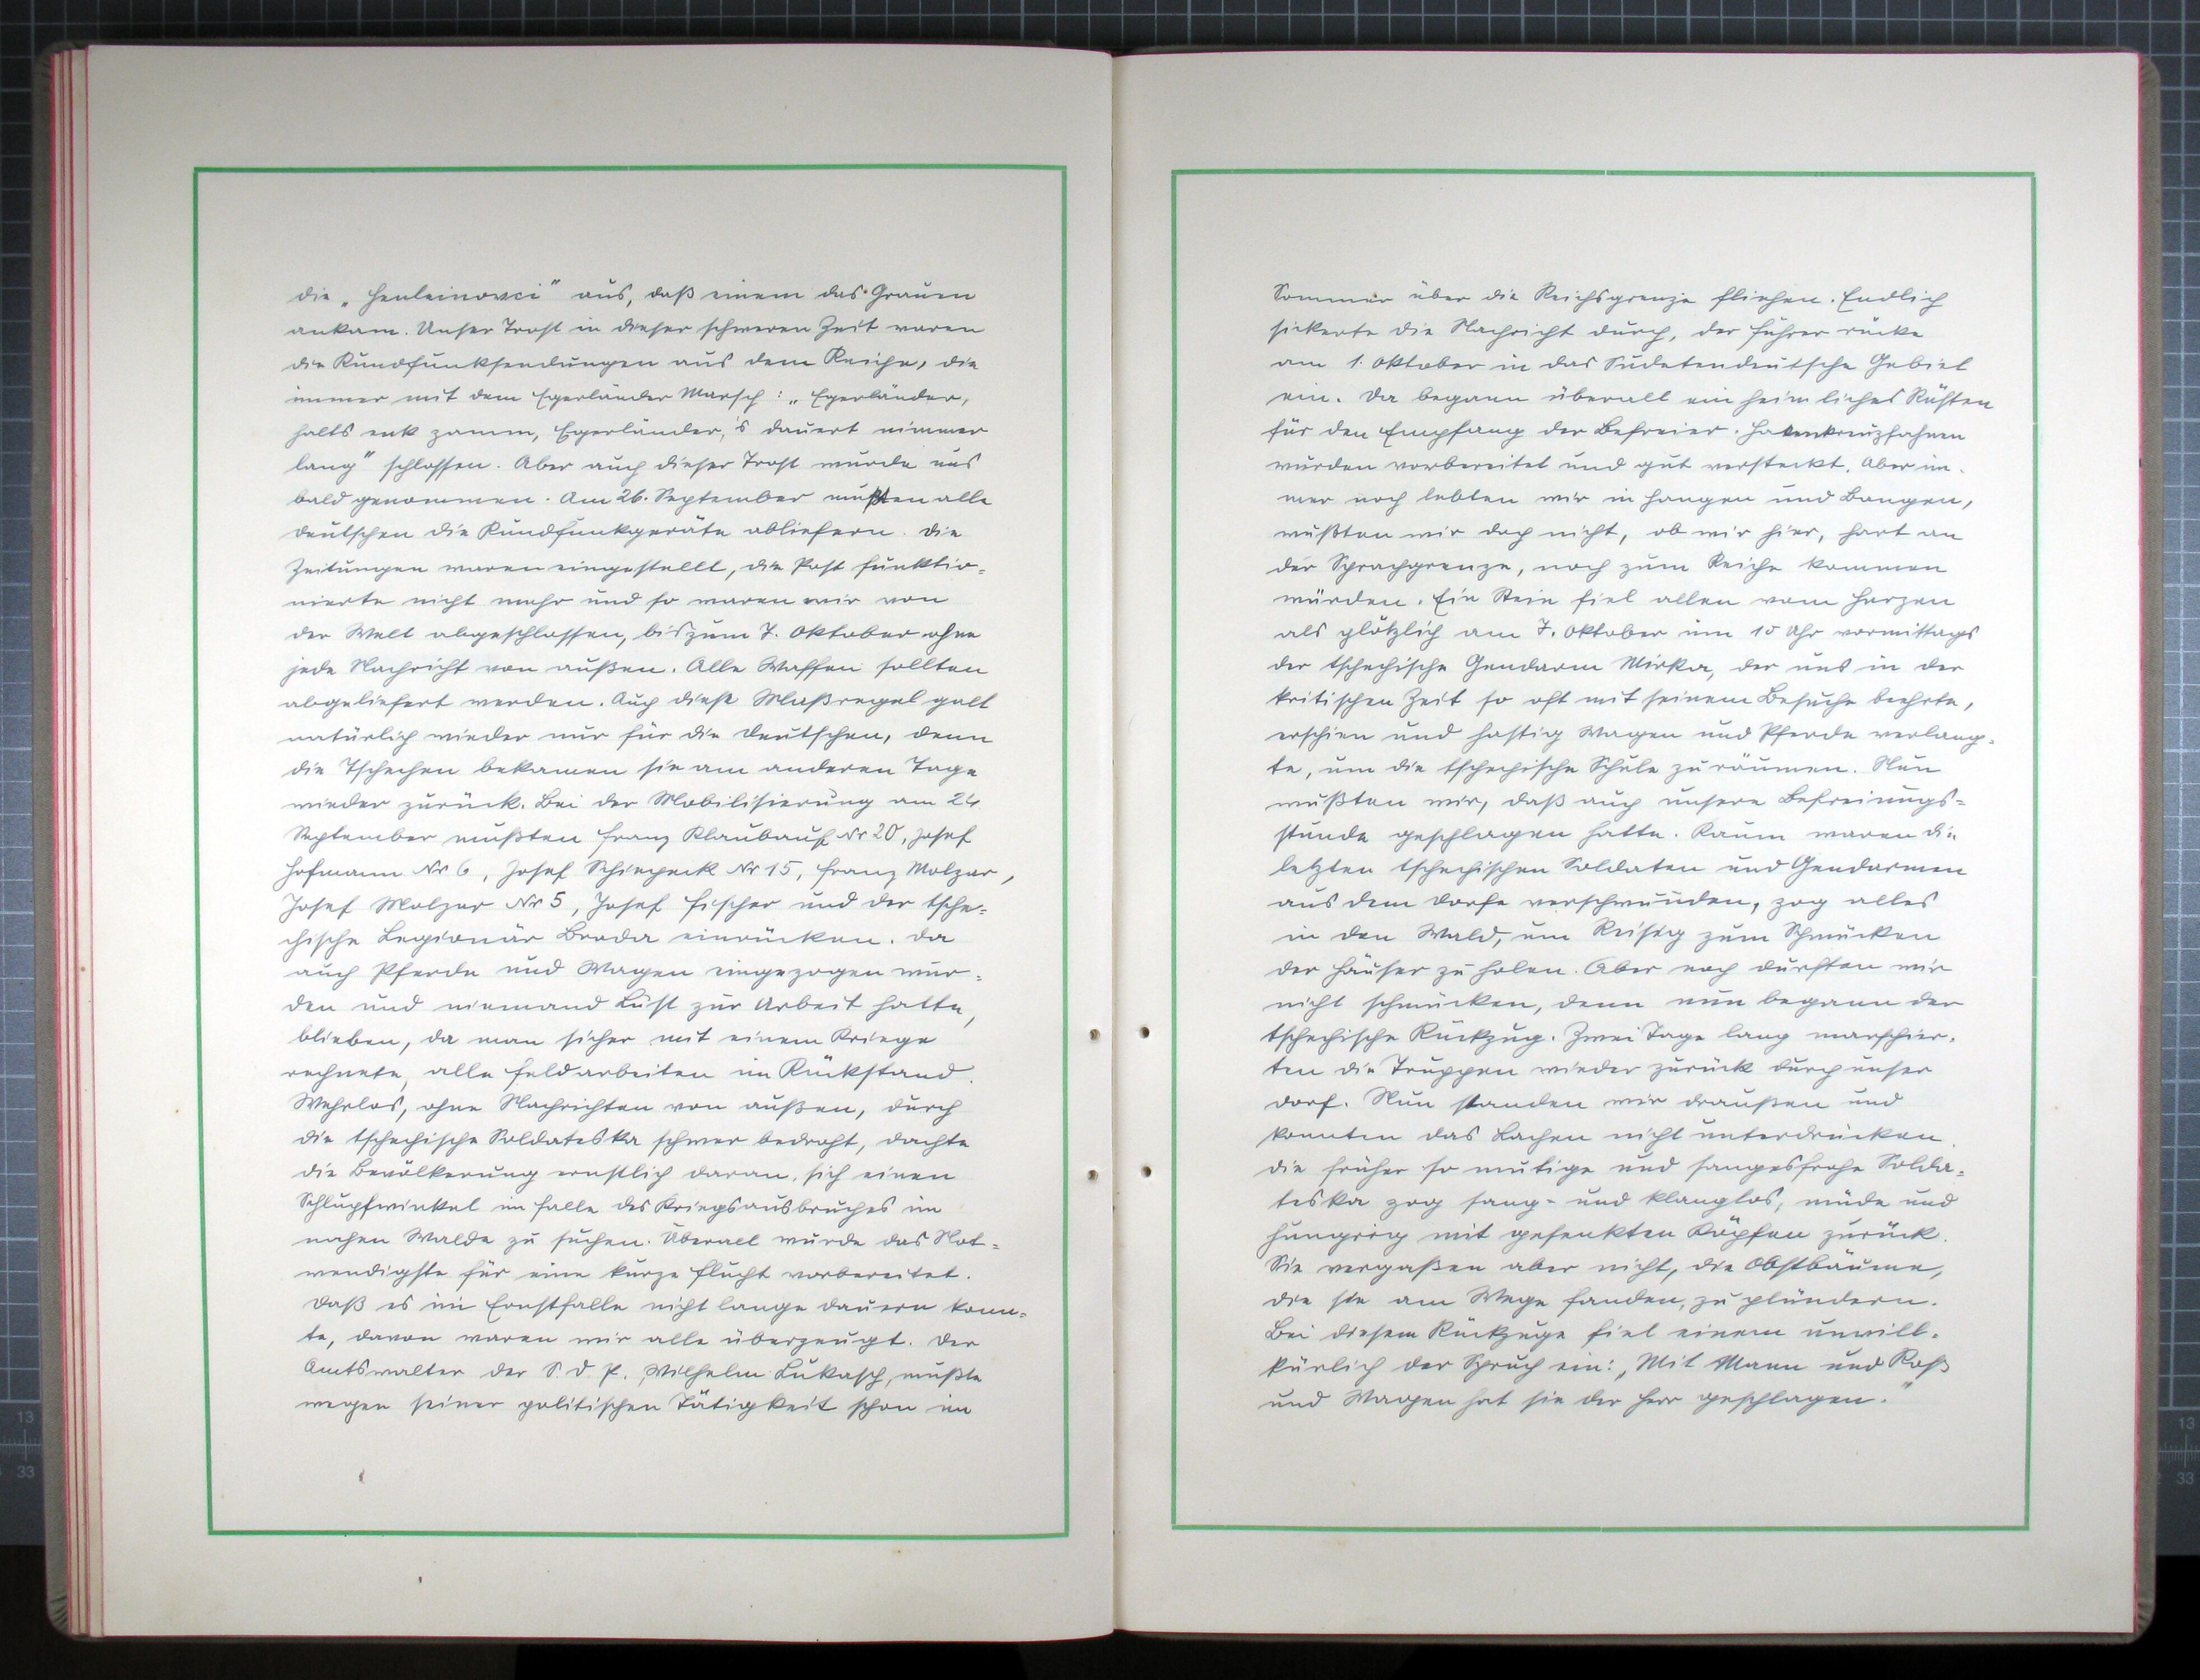 die „Henleinovci" aus, daß einem das Grauen
ankam. Unser Trost in dieser schweren Zeit waren
die Rundfunksendungen aus dem Reiche, die
immer mit dem Egerländer Marsch: „Egerländer,
halts enk zamm, Egerländer, 's dauert nimmer
lang" schlossen. Aber auch dieser Trost wurde uns
bald genommen. Am 26. September mußten alle
Deutschen die Rundfunkgeräte abliefern. Die
Zeitungen waren eingestellt, die Post funktio-
nierte nicht mehr und so waren wir von
der Welt abgeschlossen, bis zum 7. Oktober ohne
jede Nachricht von außen. Alle Waffen sollten
abgeliefert werden. Auch diese Maßregel galt
natürlich wieder nur für die Deutschen, denn
die Tschechen bekamen sie am anderen Tage
wieder zurück. Bei der Mobilisierung am 24
September mußten Franz Klaubauf Nr 20, Josef
Hofmann Nr 6, Josef Schiepeck Nr 15, Franz Molzar,
Josef Molzar Nr 5, Josef Fischer und der tsche-
chische Legionär Broda einrücken. Da
auch Pferde und Wagen eingezogen wur-
den und niemand Lust zur Arbeit hatte,
blieben, da man sicher mit einem Kriege
rechnete, alle Feldarbeiten im Rückstand.
Wehrlos, ohne Nachrichten von außen, durch
die tschechische Soldateska schwer bedroht, dachte
die Bevölkerung ernstlich daran, sich einen
Schlupfwinkel im Falle des Kriegsausbruches im
nahen Walde zu suchen. Überall wurde das Not-
wendigste für eine kurze Flucht vorbereitet.
Daß es im Ernstfalle nicht lange dauern konn-
te, davon waren wir alle überzeugt. Der
Amtswalter der S. d. P. Wilhelm Lukasch, mußte
wegen seiner politischen Tätigkeit schon im
Sommer über die Reichsgrenze fliehen. Endlich
sickerte die Nachricht durch, der Führer rücke
am 1. Oktober in das Sudetendeutsche Gebiet
ein. Da begann überall ein heimliches Rüsten
für den Empfang der Befreier. Hakenkreuzfahnen
wurden vorbereitet und gut versteckt. Aber im-
mer noch lebten wir in Hangen und Bangen,
wußten wir doch nicht, ob wir hier, hart an
der Sprachgrenze, noch zum Reiche kommen
würden. Ein Stein fiel allen vom Herzen
als plötzlich am 7. Oktober um 10 Uhr vormittags
der tschechische Gendarm Mirka, der uns in der
kritischen Zeit so oft mit seinem Besuche beehrte,
erschien und hastig Wagen und Pferde verlang-
te, um die tschechische Schule zu räumen. Nun
wußten wir, daß auch unsere Befreiungs-
stunde geschlagen hatte. Kaum waren die
letzten tschechischen Soldaten und Gendarmen
aus dem Dorfe verschwunden, zog alles
in den Wald, um Reisig zum Schmücken
der Häuser zu holen. Aber noch durften wir
nicht schmücken, denn nun begann der
tschechische Rückzug. Zwei Tage lang marschier-
ten die Truppen wieder zurück durch unser
Dorf. Nun standen wir draußen und
konnten das Lachen nicht unterdrücken.
Die früher so mutige und sangesfrohe Solda-
teska zog sang- und klanglos, müde und
hungrig mit gesenkten Köpfen zurück.
Sie vergaßen aber nicht, die Obstbäume,
die sie am Wege fanden, zu plündern.
Bei diesem Rückzuge fiel einem unwill-
kürlich der Spruch ein: „Mit Mann und Roß
und Wagen hat sie der Herr geschlagen."
13
33
13
33